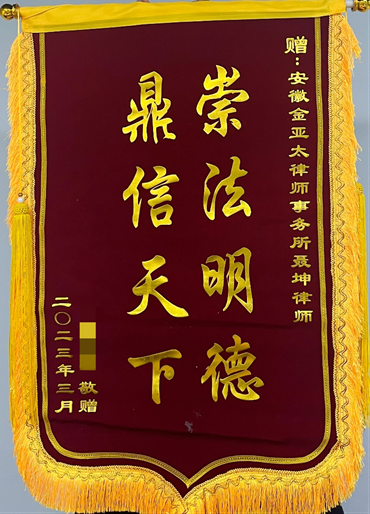 赠:安徽金亚太律师事务所聂坤律师
崇法明德
鼎信天下
敬赠
二〇二三年三月